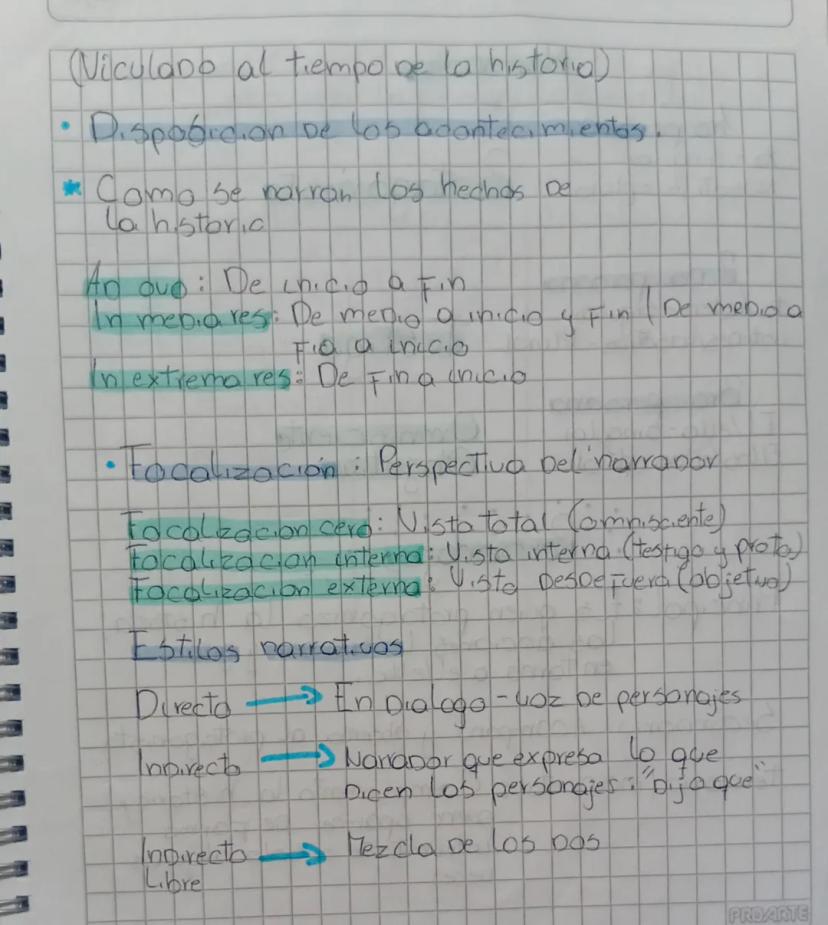 (Viculado al tiempo de la historia)
• Disposicion de los acontecimientos.
* Como se narran los hechos de
la historia
Ad ovo: De inicio a Fin
In media res: De medio a inicio y Fin / De medio a
Fia a inicio
In extrema res: De Fin a inicio
• Focalización: Perspectiva del narrador
Focalizacion cero: Vista total (omnisciente)
Focalizacion interna: Vista interna (testigo y prota)
Focalizacion externa: Vista Desde Fuera (objetivo)
Estilos narrativos
Directo → En Dialogo - voz de personajes
Indirecto → Narrador que expresa lo que
Dicen los personajes: "Dijo que"
Indirecto → Mezcla de los dos
Libre
PROARTE